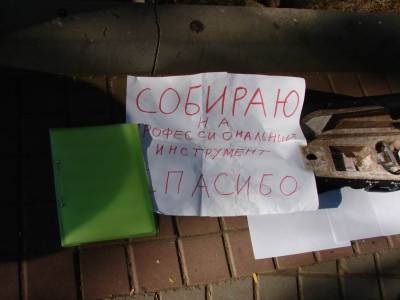 СОБИРАЮ
НА
РОФЕССИОНАЛЬНЫЙ
ИНСТРУМЕНТ
ПАСИБО